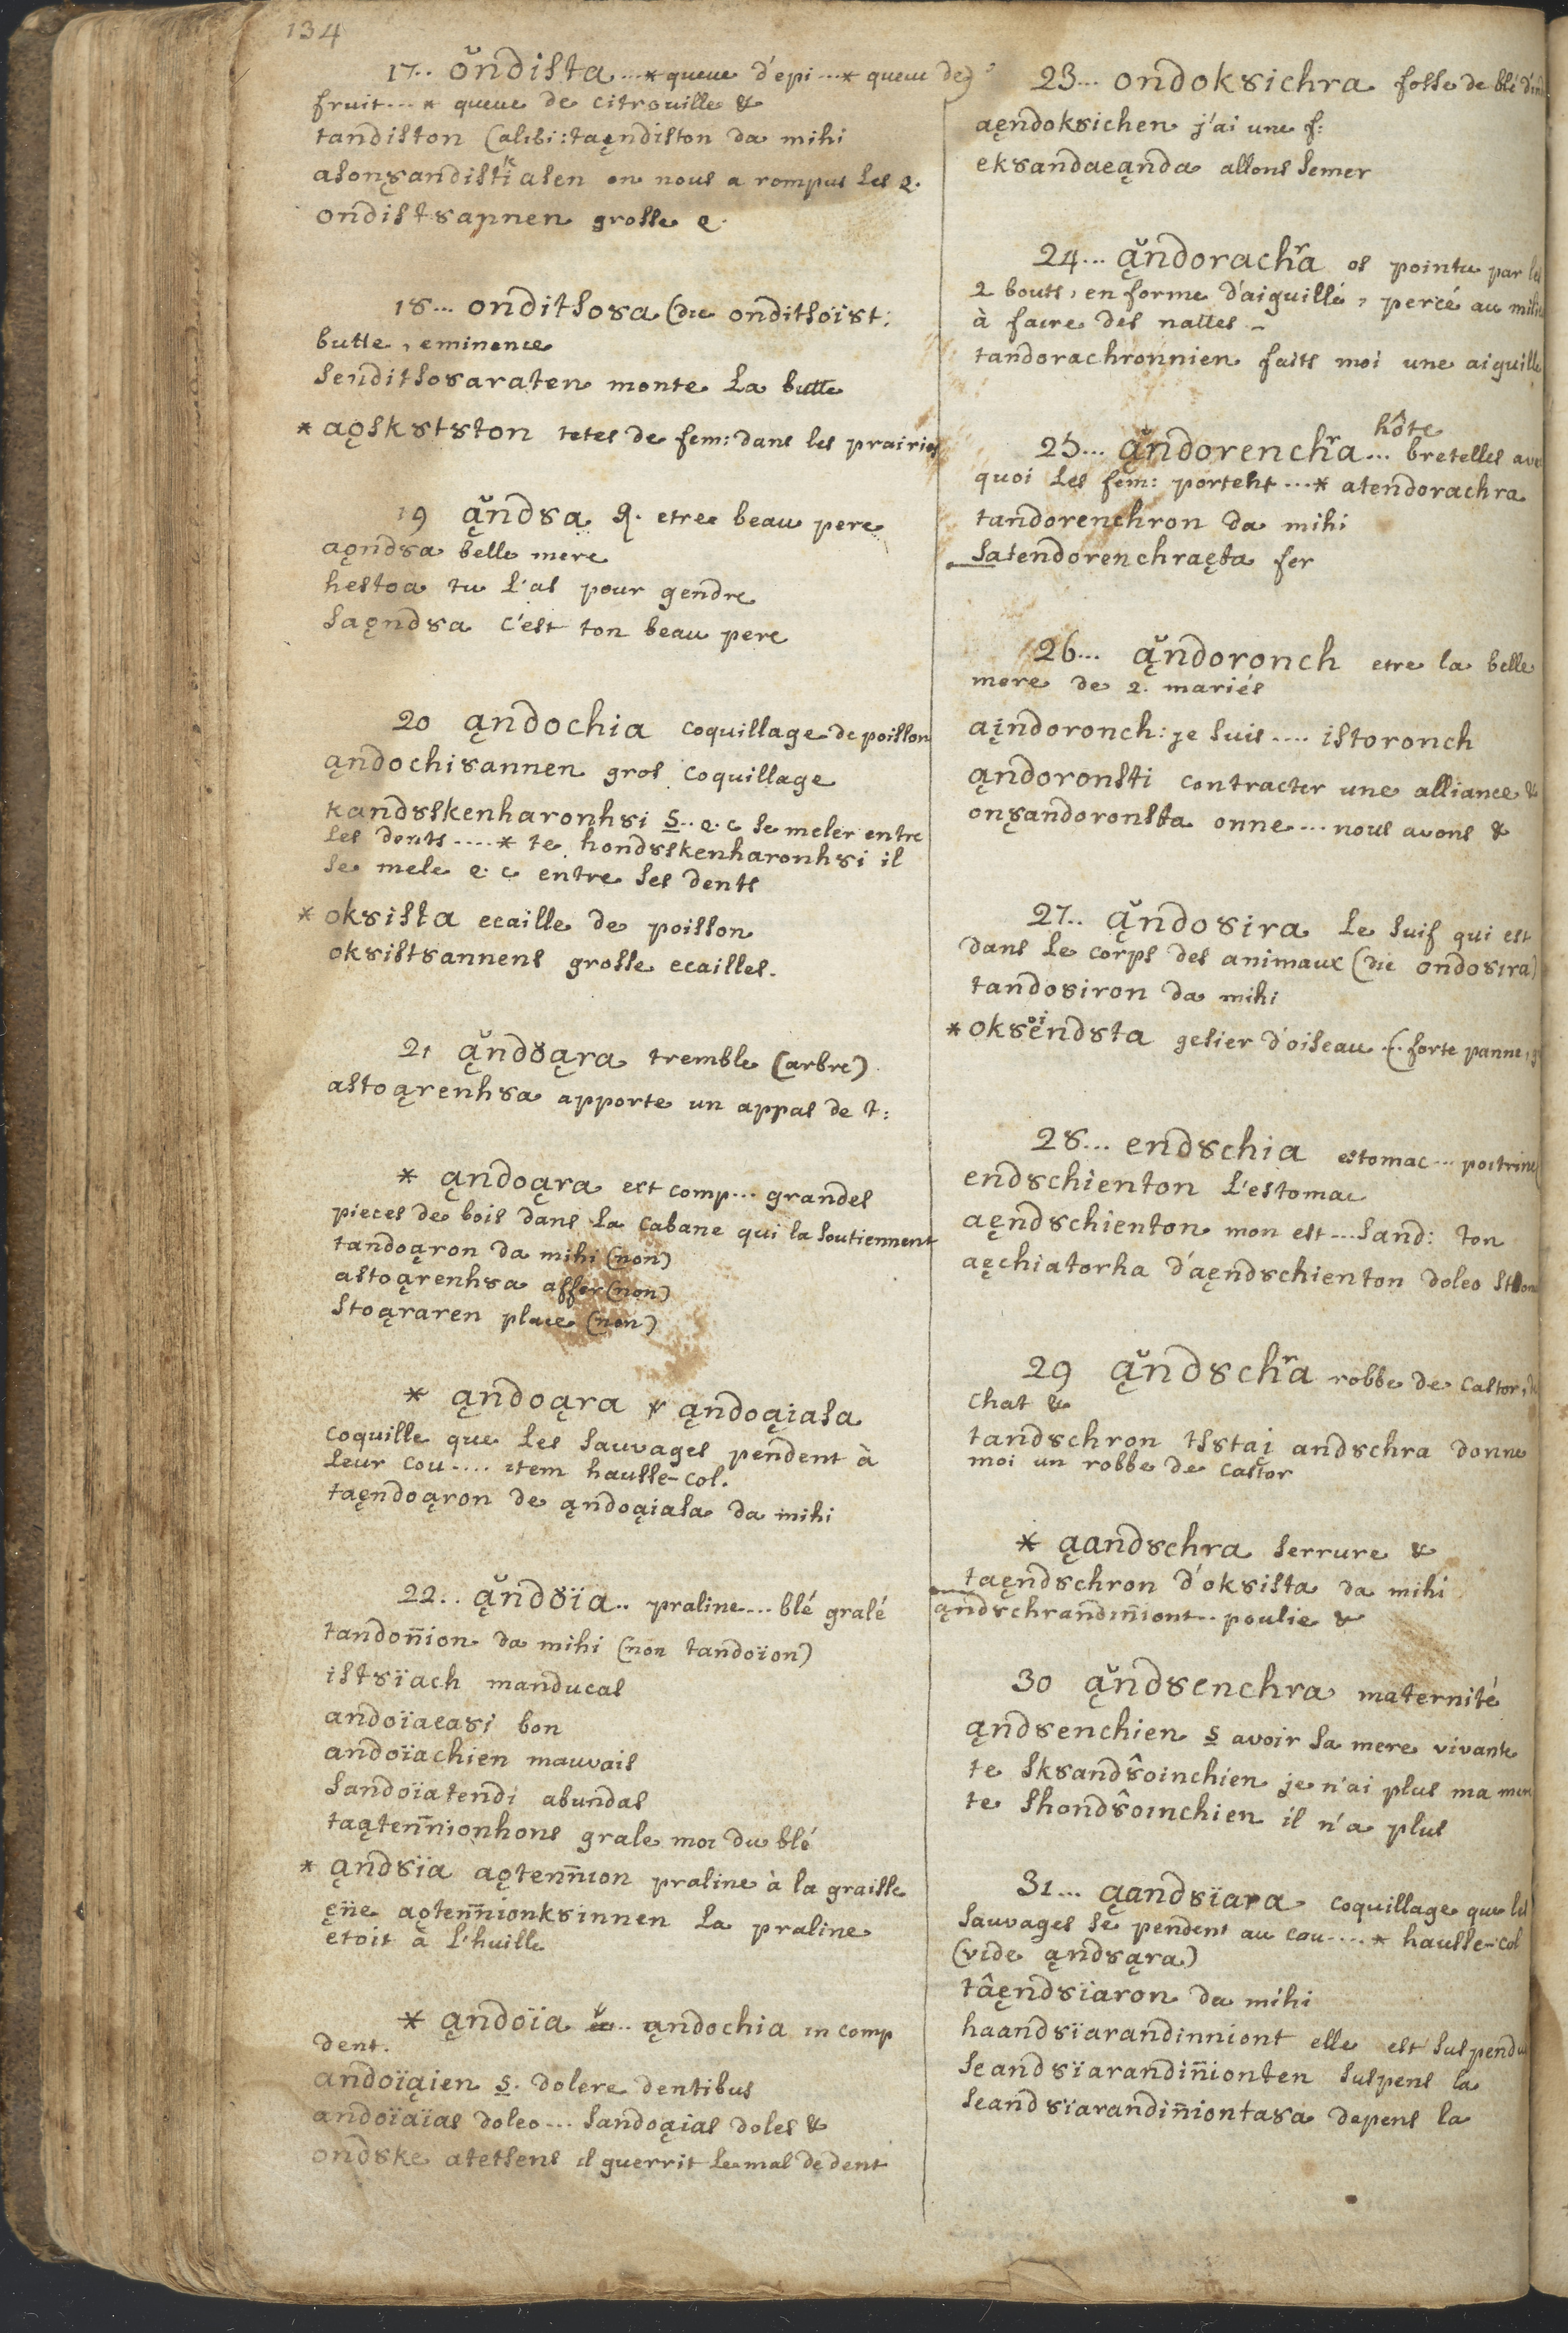 134
17.. ŏndista ...* queue d'epi ...* queue de
fruit ... * queue de citrouille &
tandiston (alibi: taęndiston da mihi
asonȣandistikasen on nous a rompus les q.
ondistȣannen grosse q.
18... onditsoȣa (dic onditsoïȣt:
butte, eminence
senditsoȣaraten monte la butte
* aǫskȣtȣton tetes de fem: dans les prairies
19 ąndȣa etre beau pere
aǫndȣa belle mere
hestoa tu l'as pour gendre
saǫndȣa c'est ton beau pere
20 ąndochia coquillage de poisson
ąndochiȣannen gros coquillage
kandȣskenharonhȣi S.. q. c se meler entre
les dents .... * te hondȣskenharonhȣi il
se mele q. c entre les dents
* okȣista ecaille de poisson
okȣistȣannens grosse ecailles.
21 ąndȣąra tremble (arbre)
astoąrenhȣa apporte un appas de t:
* ąndoąra est comp... grandes
pieces de bois dans la cabane qui la soutiennent
tandoąron da mihi (non)
astoąrenhȣa affer (non)
stoąraren place (non)
* ąndoąra & ąndoąiasa
coquille que les sauvages pendent à
leur cou .... item hausse-col.
taęndoąron de ąndoąiasa da mihi
22.. ąndȣïa.. praline ... blé gralé
tandoñion da mihi (non tandoïon)
istȣïach manducas
andoïaeaȣi bon
andoïachien mauvais
sandoïatendi abundas
taątenñionhons grale moi du blé
* ąndȣïa aǫtenñion praline à la graisse
ęñe aǫtenñionkȣinnen la praline
etoit à l'huille
* ąndoïa .. ąndochia in comp
dent.
andoïąien S. dolere dentibus
andoïaïas doleo ... sandoąias doles &
ondȣke atetsens il guerrit le mal de dent
23... ondokȣichra fosse de blé
aęndokȣichen j'ai une f:
ekȣandaeąnda allons semer
24... ąndorachra os pointu par les
2 bouts, en forme d'aiguille, percé au
à faire des nattes -
tandorachronnien faits moi une aiguille
hôte
25... ąndorenchra ... bretelles
quoi les fem: portent ...* atendorachra
tandorenchron da mihi
satendorenchraęta fer
26... ąndoronch etre la belle
mere de 2. mariés
aįndoronch: je suis .... istoronch
ąndoronsti contracter une alliance &
onȣandoronsta onne ... nous avons &
27.. ąndoȣira le suif qui est
dans le corps des animaux (dic ondoȣira)
tandoȣiron da mihi
* okȣendȣta gesier d'oiseau ... (forte panne,
28... endȣchia estomac ... poitrine
endȣchienton l'estomac
aęndȣchienton mon est ... sand: ton
aęchiatorha d'aęndȣchienton doleo
29 ąndȣchra robbe de castor,
chat &
tandȣchron tsȣtaį andȣchra donne
moi un robbe de castor
* ąandȣchra serrure &
taęndȣchron d'okȣista da mihi
ąndȣchrandiñiont.. poulie &
30 ąndȣenchra maternité
ąndȣenchien S avoir sa mere vivante
te skȣandȣ̂oinchien je n'ai plus ma mere
te shondȣ̂oinchien il n'a plus
31... ąandȣïara coquillage que les
sauvages se pendent au cou .... * hausse-col
(vide ąndȣąra)
tâęndȣïaron da mihi
haandȣïarandinniont elle est suspendue
seandȣïarandiñionten suspens la
seandȣïarandiñiontaȣa depens la